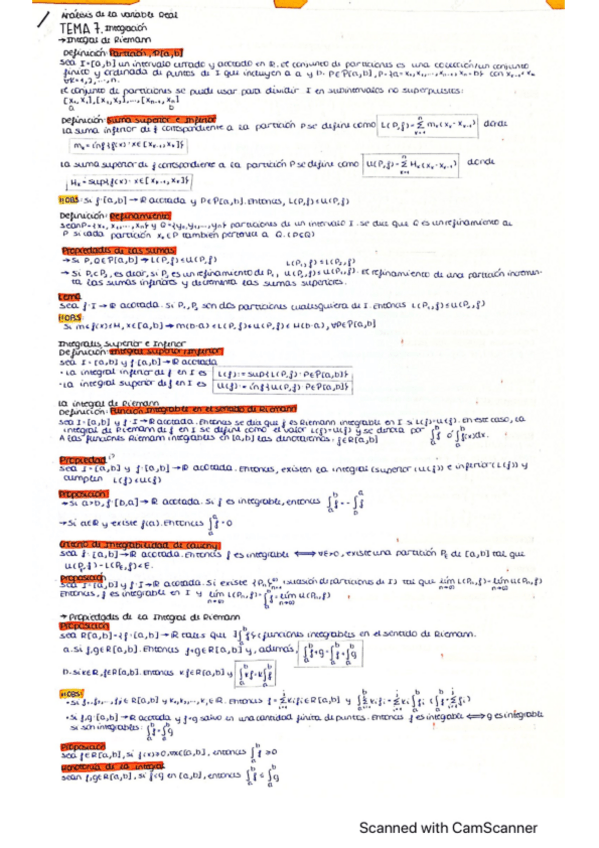 Análisis de la variable real
TEMA 7. Integración
→Integral de Riemann
Definición: Partición, P[a,b]
Sea I=[a,b] un intervalo cerrado y acotado en R. El conjunto de particiones es una colección/un conjunto
finito y ordenado de puntos de I que incluyen a a y b. P∈P[a,b], P={a=x₀,x₁,...,xₙ=b} con
El conjunto de particiones se puede usar para dividir I en subintervalos no superpuestos:
Definición: Suma superior e inferior
La suma inferior de f correspondiente a la partición P se define como L(P,f)=Σ mₖ(xₖ-xₖ₋₁) donde
mₖ=inf{f(x): x∈[xₖ₋₁,xₖ]}
La suma superior de f correspondiente a la partición P se define como U(P,f)=Σ Mₖ(xₖ-xₖ₋₁) donde
Mₖ=sup{f(x): x∈[xₖ₋₁,xₖ]}
OBS: Si f:[a,b]→R acotada y P∈P[a,b]. Entonces, L(P,f)≤U(P,f)
Definición: Refinamiento
Sean P={x₀,x₁,...,xₙ} y Q={y₀,y₁,...,yₘ} particiones de un intervalo I. Se dice que Q es un refinamiento de
P si cada partición xₖ∈P también pertenece a Q. (P⊂Q)
Propiedades de las sumas
→ Si P,Q∈P[a,b] → L(P,f)≤U(P,f)
→ Si P₁⊂P₂, es decir, si P₂ es un refinamiento de P₁, El refinamiento de una partición incremen-
ta las sumas inferiores y decrementa las sumas superiores.
Lema
Sea f:I→R acotada. Si P₁,P₂ son dos particiones cualesquiera de I. Entonces L(P₁,f)≤U(P₂,f)
OBS:
Si m≤f(x)≤M, x∈[a,b] → m(b-a)≤L(P,f)≤U(P,f)≤M(b-a), ∀P∈P[a,b]
Integrales Superior e Inferior
Definición: Integral superior/inferior
Sea I=[a,b] y f:[a,b]→R acotada
· La integral inferior de f en I es L(f):=sup{L(P,f): P∈P[a,b]}
· La integral superior de f en I es U(f):=inf{U(P,f): P∈P[a,b]}
La integral de Riemann
Definición: Función integrable en el sentido de Riemann
Sea I=[a,b] y f:I→R acotada. Entonces se dice que f es Riemann integrable en I si L(f)=U(f). En este caso, la
integral de Riemann de f en I se define como el valor L(f)=U(f) y se denota por ∫f ó ∫f(x)dx.
A las funciones Riemann integrables en [a,b] las denotaremos: f∈R[a,b]
Propiedad
Sea I=[a,b] y f:[a,b]→R acotada. Entonces, existen la integral (superior (U(f)) e inferior (L(f)) y
cumplen L(f)≤U(f)
Proposición
→ Si a>b, f:[b,a]→R acotada. Si f es integrable, entonces ∫f=-∫f
→ Si a∈R y existe f(a). Entonces ∫f=0
Criterio de Integrabilidad de Cauchy
Sea f:[a,b]→R acotada. Entonces f es integrable ⟺ ∀ε>0, existe una partición Pε de [a,b] tal que
U(Pε,f)-L(Pε,f)<ε.
Proposición
Sea I=[a,b] y f:I→R acotada. Si existe {Pₙ} (sucesión de particiones de I) tal que lim L(Pₙ,f)=lim U(Pₙ,f)
Entonces, f es integrable en I y lim L(Pₙ,f)=∫f=lim U(Pₙ,f)
→ Propiedades de la Integral de Riemann
Proposición
Sea R[a,b]={f:[a,b]→R tales que ∃∫f} funciones integrables en el sentido de Riemann.
a. Si f,g∈R[a,b]. Entonces f+g∈R[a,b] y, además, ∫f+g=∫f+∫g
b. Si k∈R, f∈R[a,b]. Entonces kf∈R[a,b] y ∫kf=k∫f
OBS:
· Si f₁,f₂,...,fⱼ∈R[a,b] y k₁,k₂,...,kⱼ∈R. Entonces f=Σkᵢfᵢ∈R[a,b] y
· Si f,g:[a,b]→R acotada y f=g salvo en una cantidad finita de puntos. Entonces f es integable ⟺ g es integrable
Si son integrables: ∫f=∫g
Proposición
Sea f∈R[a,b], si f(x)≥0, ∀x∈[a,b], entonces ∫f≥0
Monotonía de la integral
Sean f,g∈R[a,b], si f≤g en [a,b], entonces ∫f≤∫g
Scanned with CamScanner